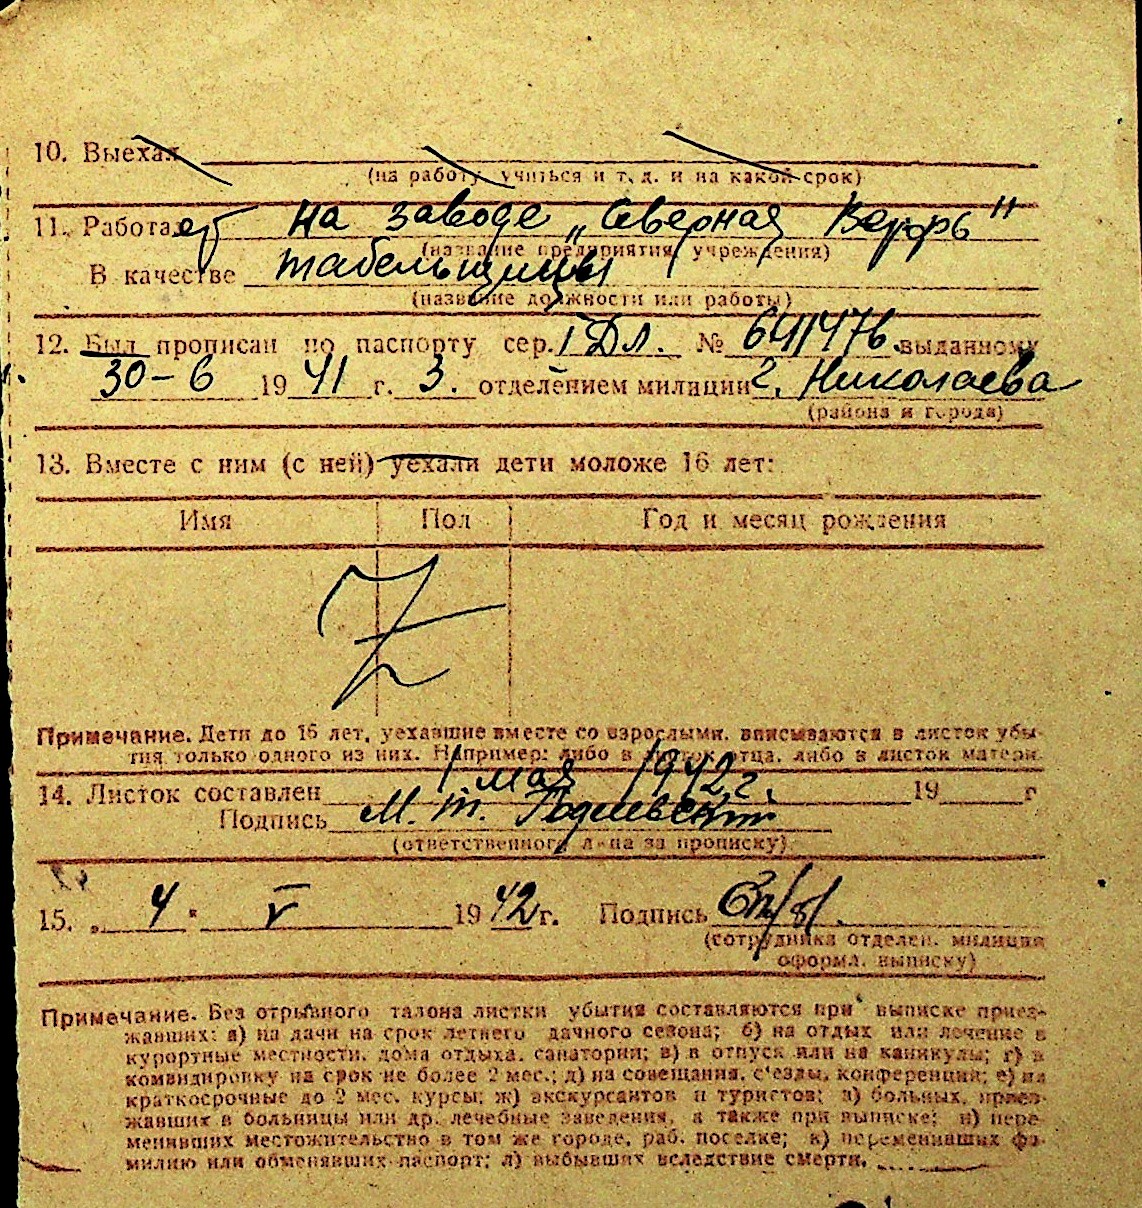 10. Выехал
(на работу, учиться и т. д. и на какой срок)
11. Работает на заводе „Северная Верфь"
(название предприятия, учреждения)
В качестве табельщицы
(название должности или работы)
12. Был прописан по паспорту сер. I Дл. № 641476 выданному
30-6 1941 г. 3. отделением милиции г. Николаева
(района и города)
13. Вместе с ним (с ней) уехали дети моложе 16 лет:
Имя Пол Год и месяц рождения
Z
Примечание. Дети до 16 лет, уехавшие вместе со взрослыми, вписываются в листок убы-
тия только одного из них. Например: либо в листок отца, либо в листок матери.
14. Листок составлен 1 мая 1942 г. 19 г
Подпись М. т.
(ответственного лица за прописку)
15. „ 4 " V 1942 г. Подпись
(сотрудника отделен. милиции
оформл. выписку)
Примечание. Без отрывного талона листки убытия составляются при выписке приез-
жавших: а) на дачи на срок летнего дачного сезона; б) на отдых или лечение в
курортные местности, дома отдыха, санатории; в) в отпуск или на каникулы; г) в
командировку на срок не более 2 мес.; д) на совещания, с'езды, конференции; е) на
краткосрочные до 2 мес. курсы; ж) экскурсантов и туристов; з) больных, приез-
жавших в больницы или др. лечебные заведения, а также при выписке; и) пере-
менивших местожительство в том же городе, раб. поселке; к) переменивших фа-
милию или обменявших паспорт; л) выбывших вследствие смерти.